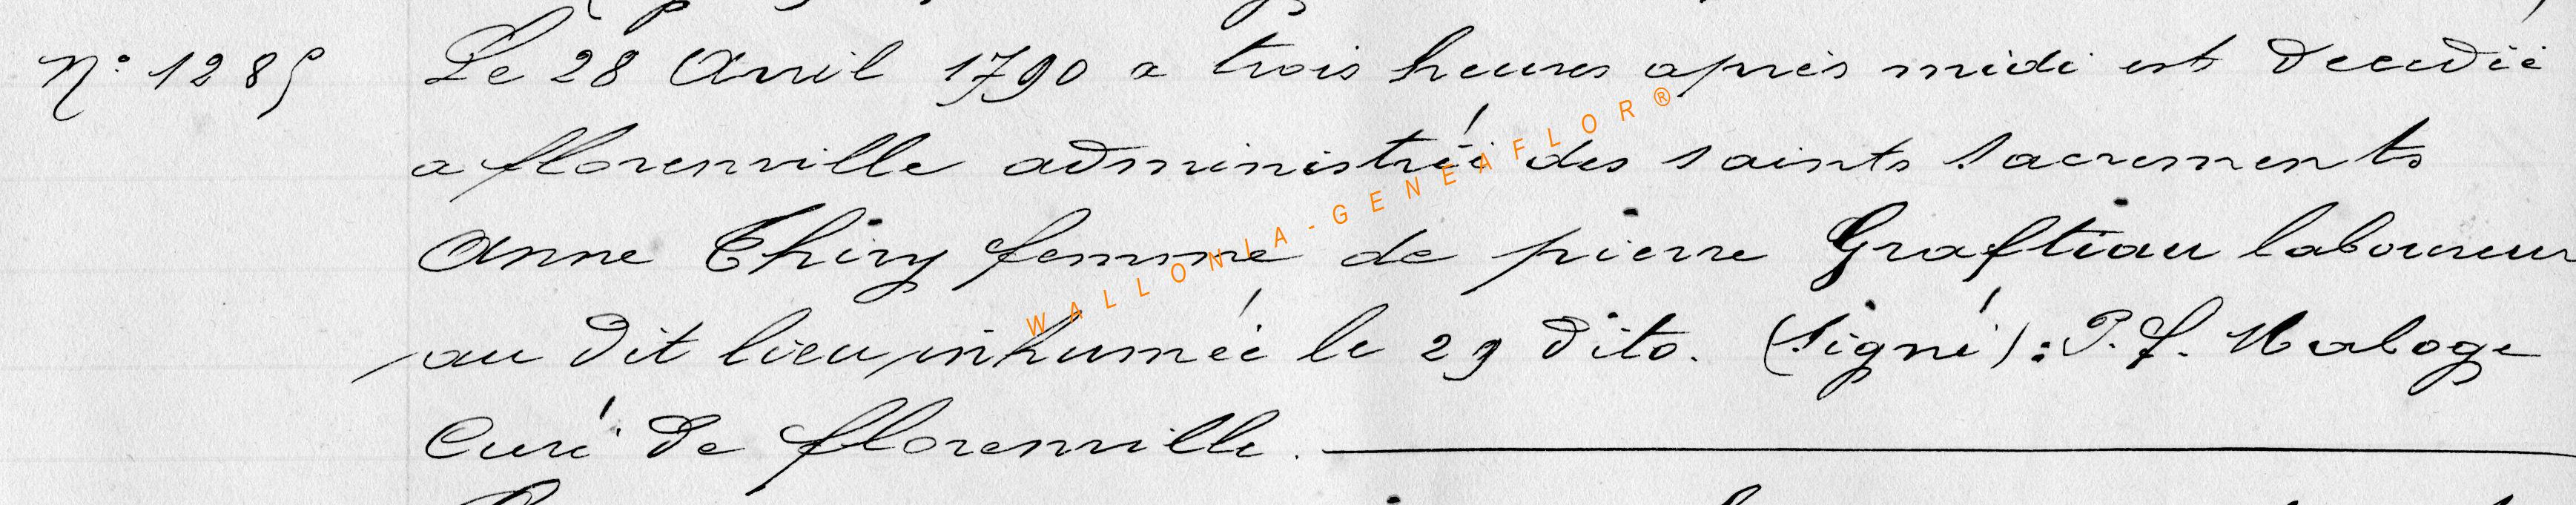 N° 1285 Le 28 Avril 1790 a trois heures après midi est decedée
a florenville administrée des saints sacrements
Anne Thiry femme de pierre Graftiau laboureur
au dit lieu inhumée le 29 dito. (signé): P. f. Maloge
Curé de florenville.
WALLONIA-GENEAFLOR®